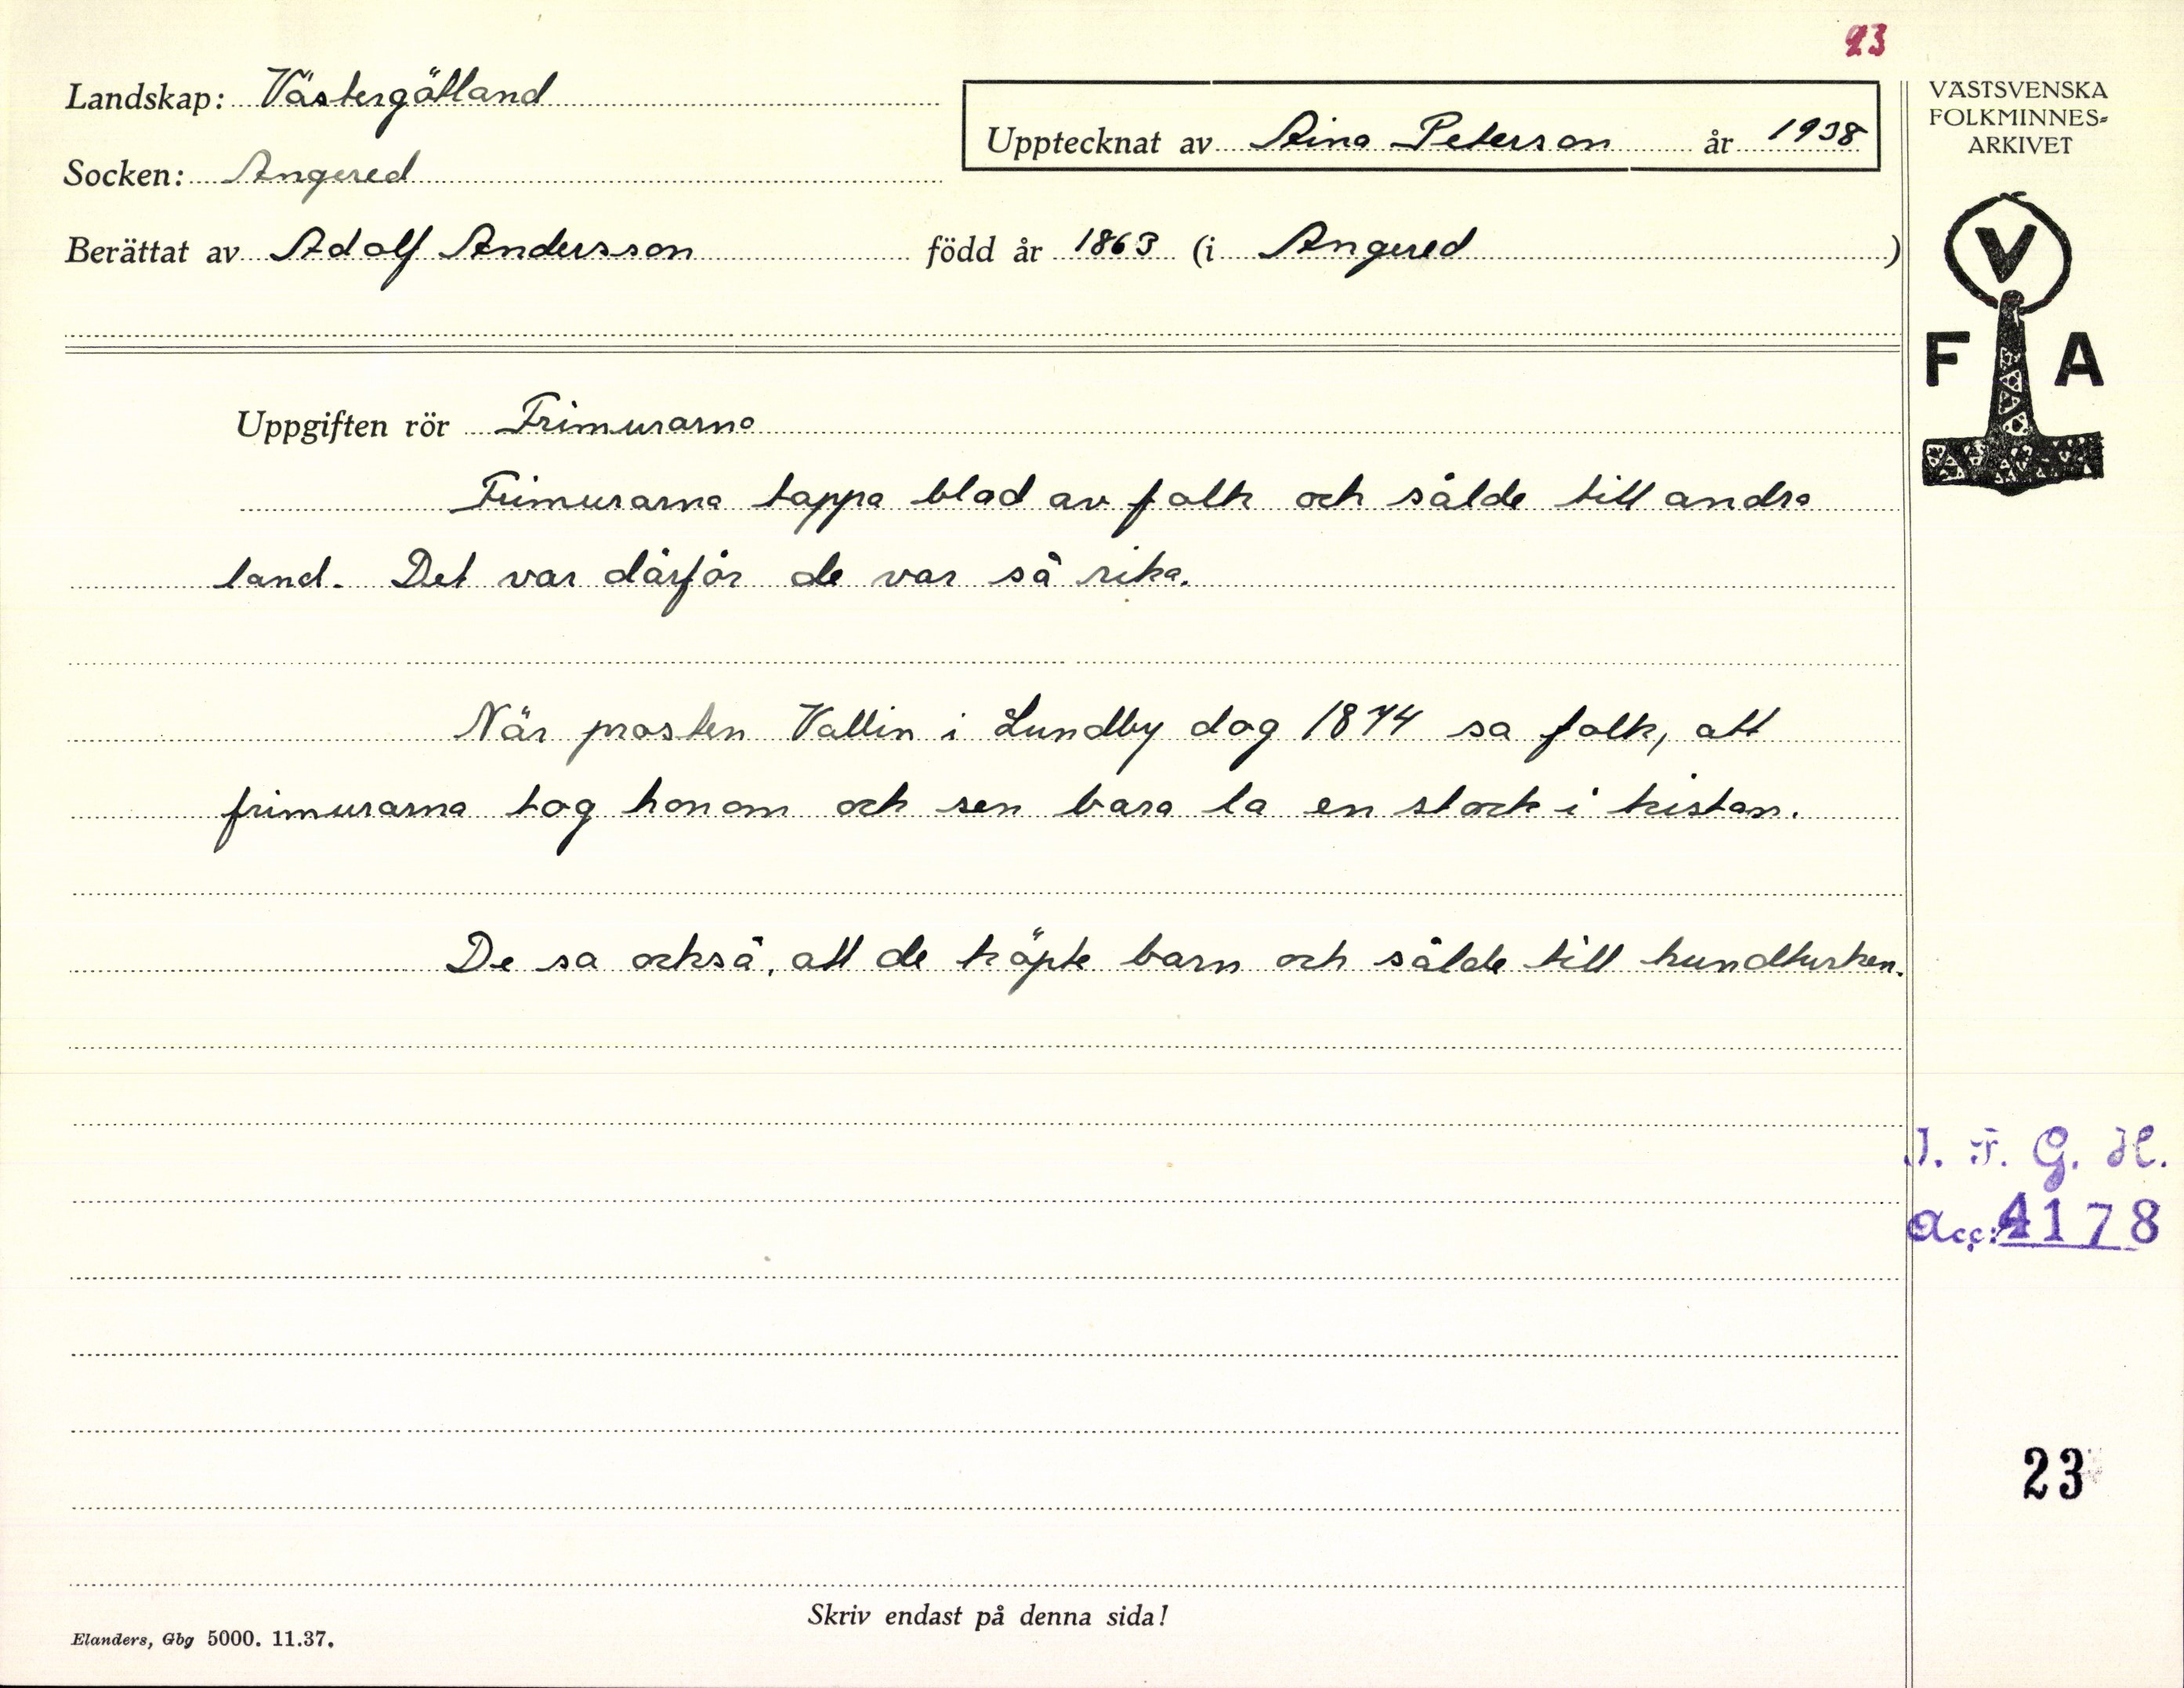 23
Landskap: Västergötland
Upptecknat av Aina Peterson år 1938
VÄSTSVENSKA
FOLKMINNES-
ARKIVET
Socken: Angered
Berättat av Adolf Andersson född år 1863 (i Angered)
V
F A
Uppgiften rör Frimurarna
Frimurarna tappa blod av folk och sålde till andra
land. Det var därför de var så rika.
När prosten Vallin i Lundby dog 1874 sa folk, att
frimurarna tog honom och sen bara la en stock i kistan.
De sa också, att de köpte barn och sålde till hundturken.
I. F. G. H.
Acc: 4178
23
Skriv endast på denna sida!
Elanders, Gbg 5000. 11.37.